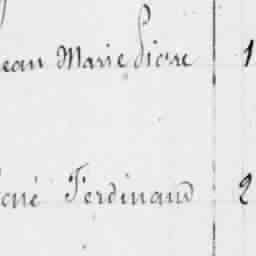 Jean Marie Pierre 1
René Ferdinand 2